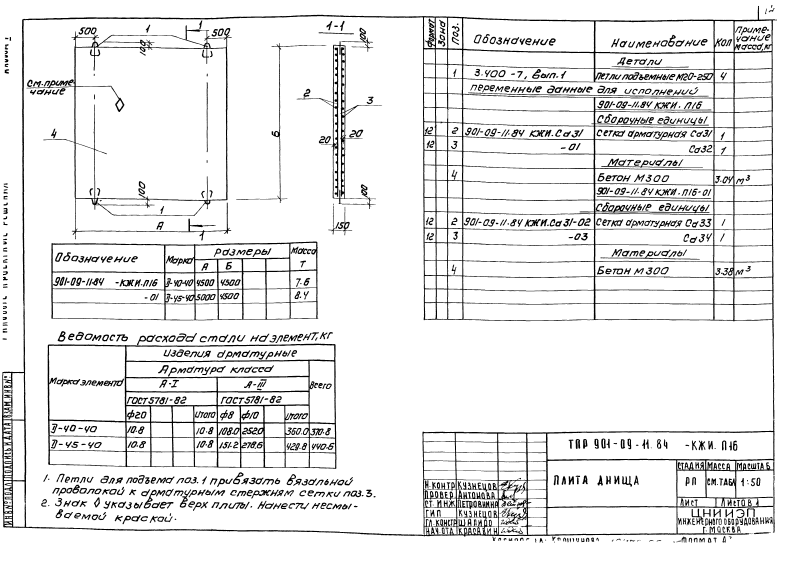 1
1
1-1
500
500
100
100
См. приме-
чание
2
3
4
20
20
Б
100
1
100
А
1
150
Обозначение
Марка
Размеры
Масса
Т
А
Б
901-09-11.84 -КЖИ.П16
П-40-40
4500
4500
7.6
-01
П-45-40
5000
4500
8.4
Ведомость расхода стали на элемент, кг
Марка элемента
Изделия арматурные
Всего
Арматура класса
А-I
А-III
ГОСТ 5781-82
ГОСТ 5781-82
Ф20
Итого
Ф8
Ф10
Итого
П-40-40
10.8
10.8
108.0
252.0
360.0
370.8
П-45-40
10.8
10.8
151.2
278.6
429.8
440.6
1. Петли для подъема поз.1 привязать вязальной
проволокой к арматурным стержням сетки поз.3.
2. Знак ◊ указывает верх плиты. Нанести несмы-
ваемой краской.
Формат
Зона
Поз.
Обозначение
Наименование
Кол
Приме-
чание
масса, кг
Детали
1
3.400-7, вып.1
Петли подъемные М20-250
4
переменные данные для исполнений
901-09-11.84 КЖИ.П16
Сборочные единицы
12
2
901-09-11.84 КЖИ.Са31
Сетка арматурная Са31
1
12
3
-01
Са32
1
Материалы
4
Бетон М300
3.04
м³
901-09-11.84 КЖИ.П16-01
Сборочные единицы
12
2
901-09-11.84 КЖИ.Са31-02
Сетка арматурная Са33
1
12
3
-03
Са34
1
Материалы
4
Бетон М300
3.38
м³
ТПР 901-09-11.84 -КЖИ.П16
Плита днища
Стадия
Масса
Масштаб
РП
См.табл
1:50
Лист
Листов 1
ЦНИИЭП
инженерного оборудования
г. Москва
Н.контр
Кузнецов
Провер.
Антонова
Ст.инж
Петровнина
ГИП
Кузнецов
Гл.констр
Шапиро
Нач.отд
Красавин
Формат А3
Взам.инв.№
Подпись и дата
Инв.№подл